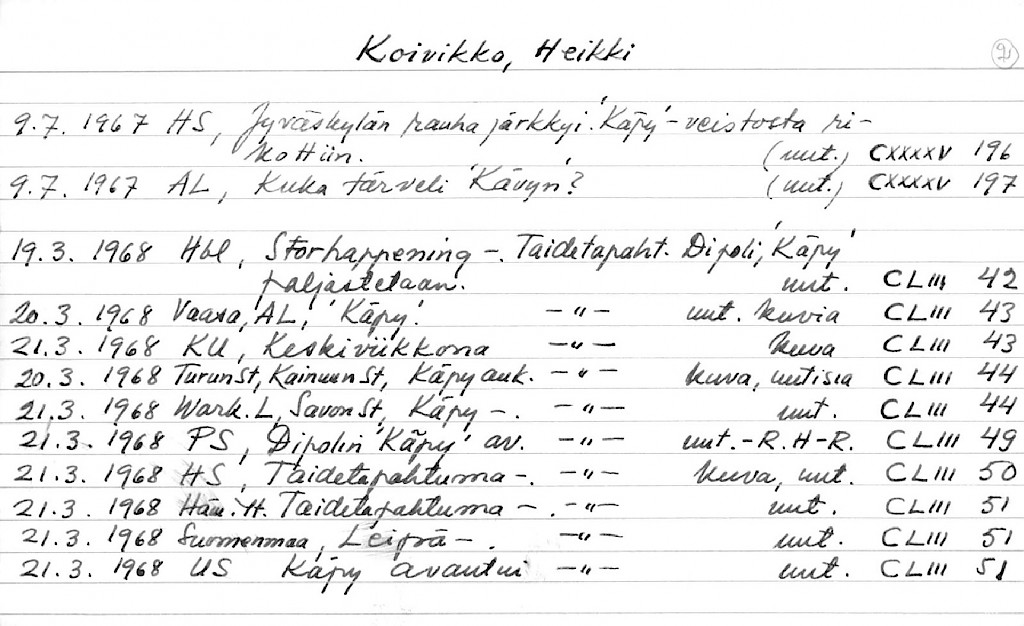 Koivikko, Heikki
9.7. 1967 HS, Jyväskylän rauha järkkyi. 'Käpy'-veistosta ri-
kottiin. (uut.) CXXXXV 196
9.7. 1967 AL, Kuka tärveli 'Kävyn'? (uut.) CXXXXV 197
19.3. 1968 Hbl, Storhappening -. Taidetapaht. Dipoli, 'Käpy'
paljastetaan. uut. CLIII 42
20.3. 1968 Vaasa, AL, 'Käpy'. -"- uut. kuvia CLIII 43
21.3. 1968 KU, Keskiviikkona -"- kuva CLIII 43
20.3. 1968 TurunSt, KainuunSt, Käpy auk. -"- kuva, uutisia CLIII 44
21.3. 1968 Wark. L, SavonSt, Käpy -. -"- uut. CLIII 44
21.3. 1968 PS, Dipolin 'Käpy' av. -"- uut. -R. H-R. CLIII 49
21.3. 1968 HS, Taidetapahtuma -. -"- kuva, uut. CLIII 50
21.3. 1968 Hän. H. Taidetapahtuma -. -"- uut. CLIII 51
21.3. 1968 Suomenmaa, Leipä -. -"- uut. CLIII 51
21.3. 1968 US Käpy avautui -"- uut. CLIII 51